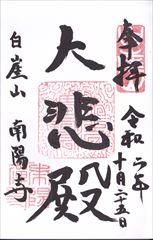 奉拝
令和六年
十月二十五日
大悲殿
白崖山 南陽寺